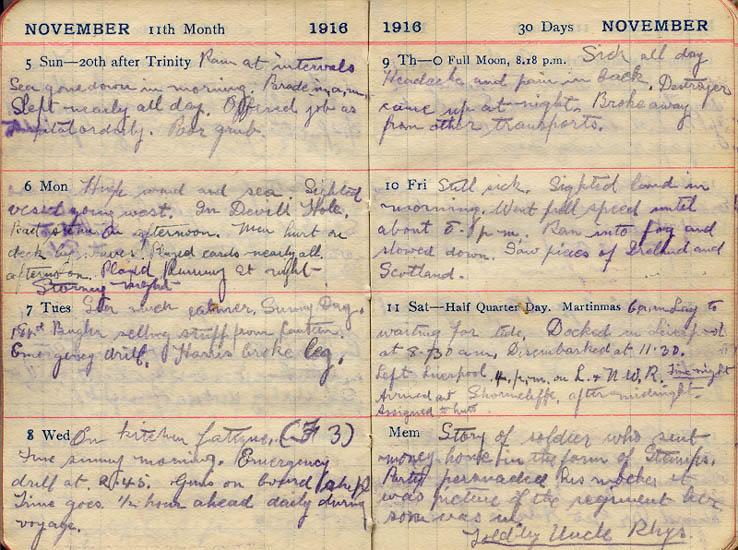 NOVEMBER 11th Month 1916
5 Sun—20th after Trinity Rain at intervals
Sea gone down in morning. Parade in a.m.
Slept nearly all day. Offered job as
orderly. Poor grub.
6 Mon High wind and sea Sighted
vessel going west. In Devil's Hole.
on afternoon. Men hurt on
deck by waves. Played cards nearly all
afternoon. Played Rummy at night
Stormy night
7 Tues Sea much calmer. Sunny Day.
Bugler selling stuff from Canteen.
Emergency drill. Harris broke leg.
8 Wed On kitchen fatigue.
Fine sunny morning. Emergency
drill at 2.45. Guns on board ship
Time goes 1/2 hour ahead daily during
voyage.
1916 30 Days NOVEMBER
9 Th—O Full Moon, 8.18 p.m. Sick all day
Headache and pain in back. Destroyer
came up at night. Broke away
from other transports.
10 Fri Still sick. Sighted land in
morning. Went full speed until
about p.m. Ran into fog and
slowed down. Saw pieces of Ireland and
Scotland.
11 Sat—Half Quarter Day. Martinmas 6 a.m. Lay to
waiting for tide. Docked in Liverpool
at 8-30 a.m. Disembarked at 11.30.
Left Liverpool 4 p.m. on L. & N.W.R. Fine night
Arrived at Shorncliffe, after midnight
Assigned to huts
Mem Story of soldier who sent
money home in the form of Stamps.
Party persuaded his mother it
was picture of the regiment her
son was in.
Told by Uncle Rhys.